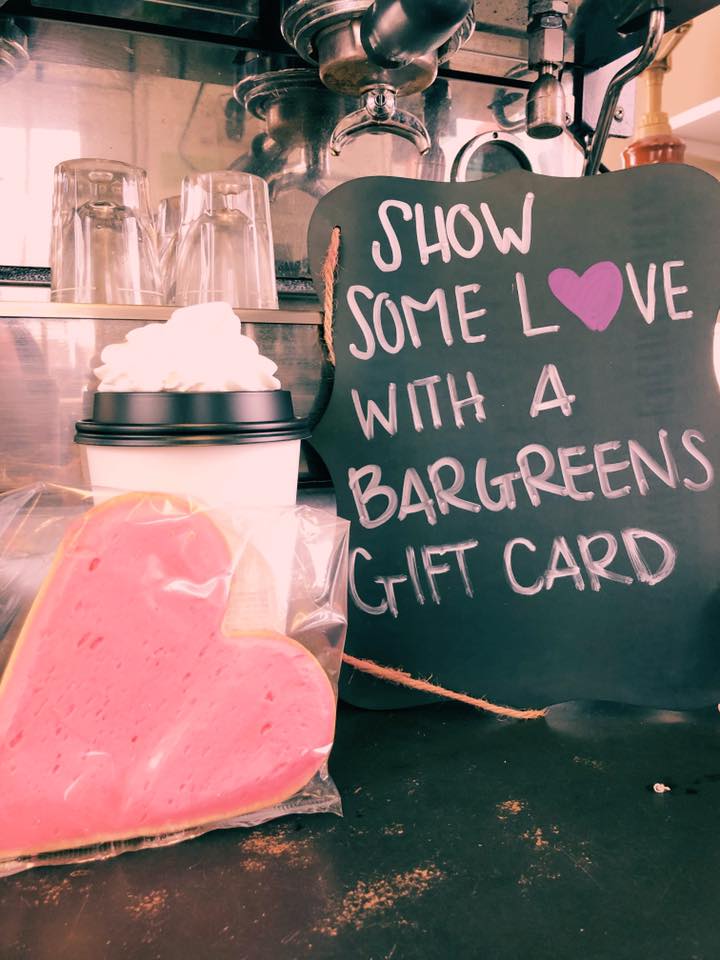 SHOW
SOME L💜VE
WITH A
BARGREENS
GIFT CARD